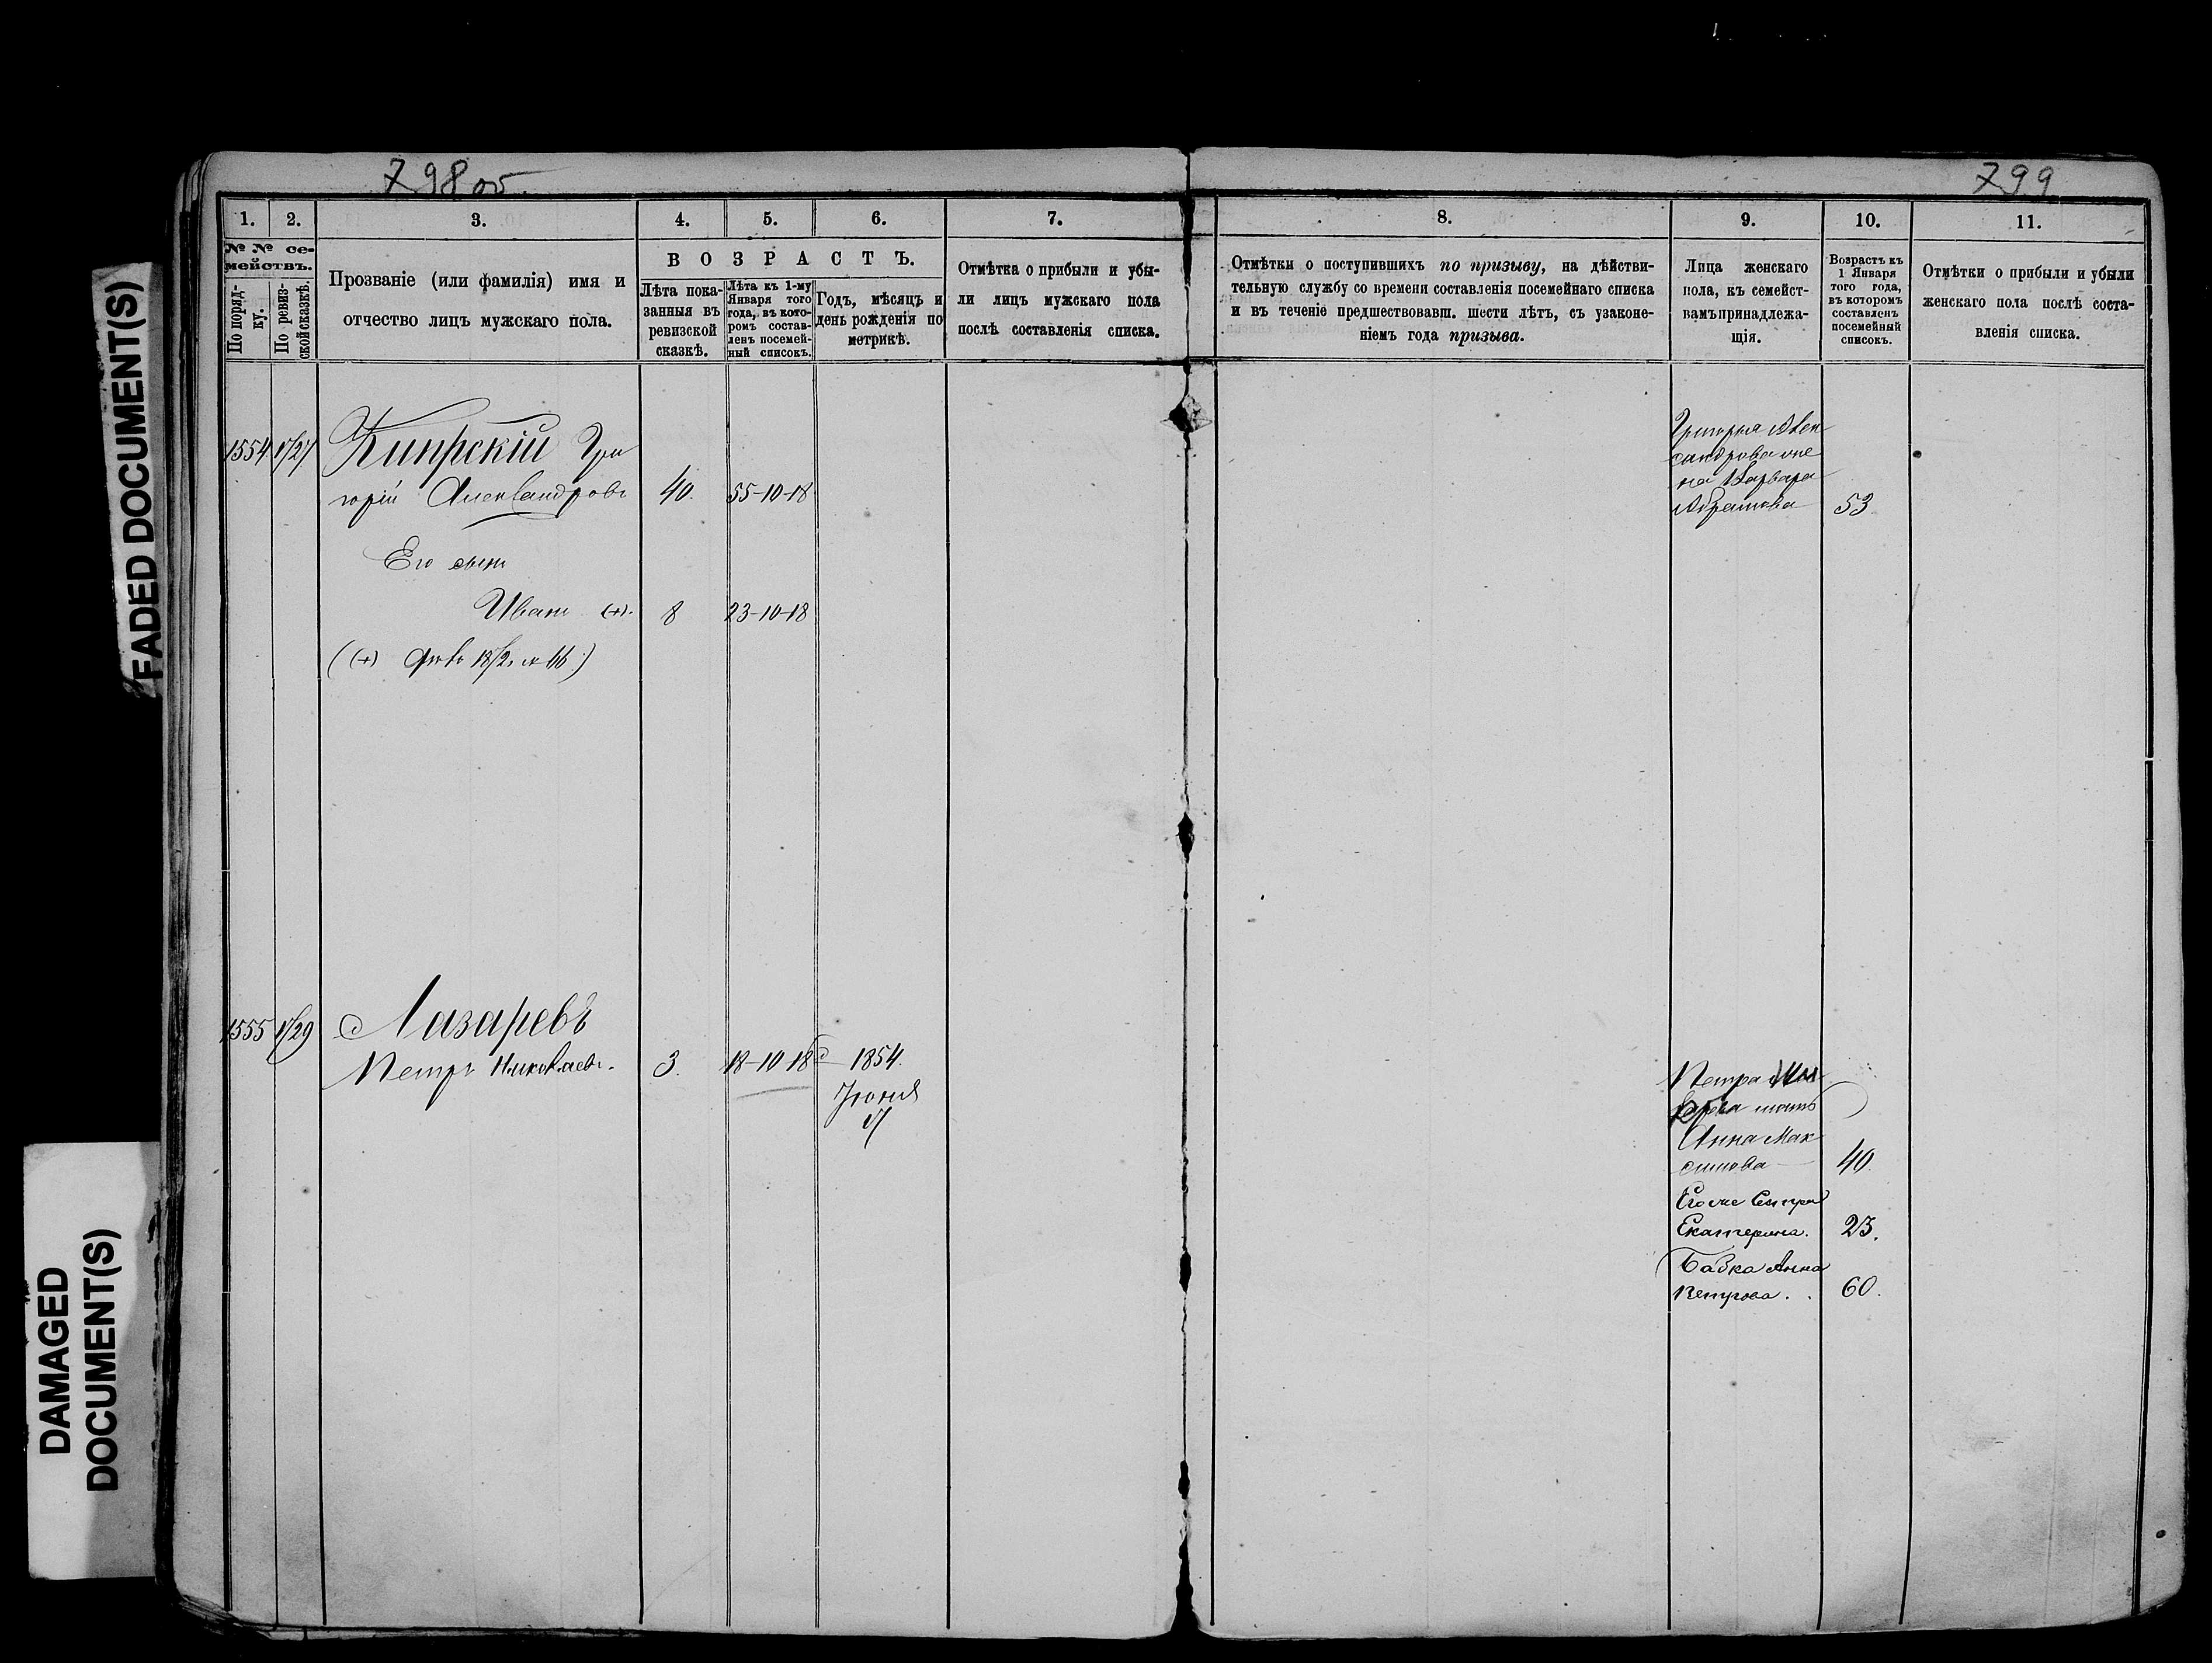 798 об.
799
1.
2.
3.
4.
5.
6.
7.
8.
9.
10.
11.
№ № се-
мействъ.
По поряд-
ку.
По ревиз-
ской сказкѣ.
Прозваніе (или фамилія) имя и
отчество лицъ мужскаго пола.
ВОЗРАСТЪ.
Лѣта пока-
занныя въ
ревизской
сказкѣ.
Лѣта къ 1-му
Января того
года, въ кото-
ромъ состав-
ленъ посемей-
ный списокъ.
Годъ, мѣсяцъ и
день рожденія по
метрикѣ.
Отмѣтка о прибыли и убы-
ли лицъ мужскаго пола
послѣ составленія списка.
Отмѣтки о поступившихъ по призыву, на дѣйстви-
тельную службу со времени составленія посемейнаго списка
и въ теченіе предшествовавш. шести лѣтъ, съ узаконе-
ніемъ года призыва.
Лица женскаго
пола, къ семейст-
вамъ принадлежа-
щія.
Возрастъ къ
1 Января
того года,
въ которомъ
составленъ
посемейный
списокъ.
Отмѣтки о прибыли и убыли
женскаго пола послѣ соста-
вленія списка.
1554
Кипрскій Гри
горій Александровъ
40.
55-10-18
Григорья Алек
сандрова же
на Варвара
Абрамова
53
Его сынъ
Иванъ (+).
8
23-10-18
1555
Лазаревъ
Петръ Николаевъ.
3.
18-10-18
1854.
Іюня
Петра
мать
Анна Мак
симова
40.
Его же Сестра
Екатерина.
23.
Бабка Анна
Петрова.
60.
FADED DOCUMENT(S)
DAMAGED
DOCUMENT(S)